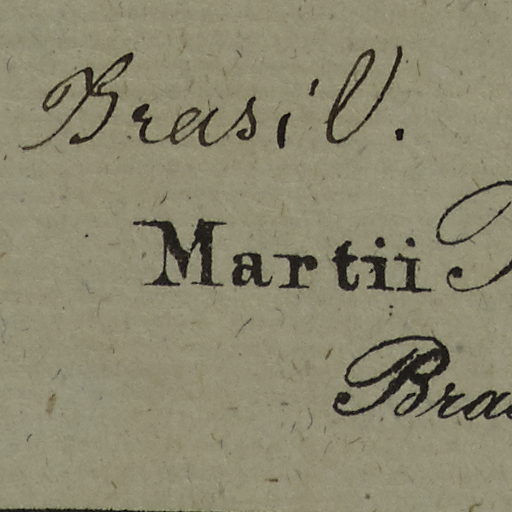 Brasil.
Martii